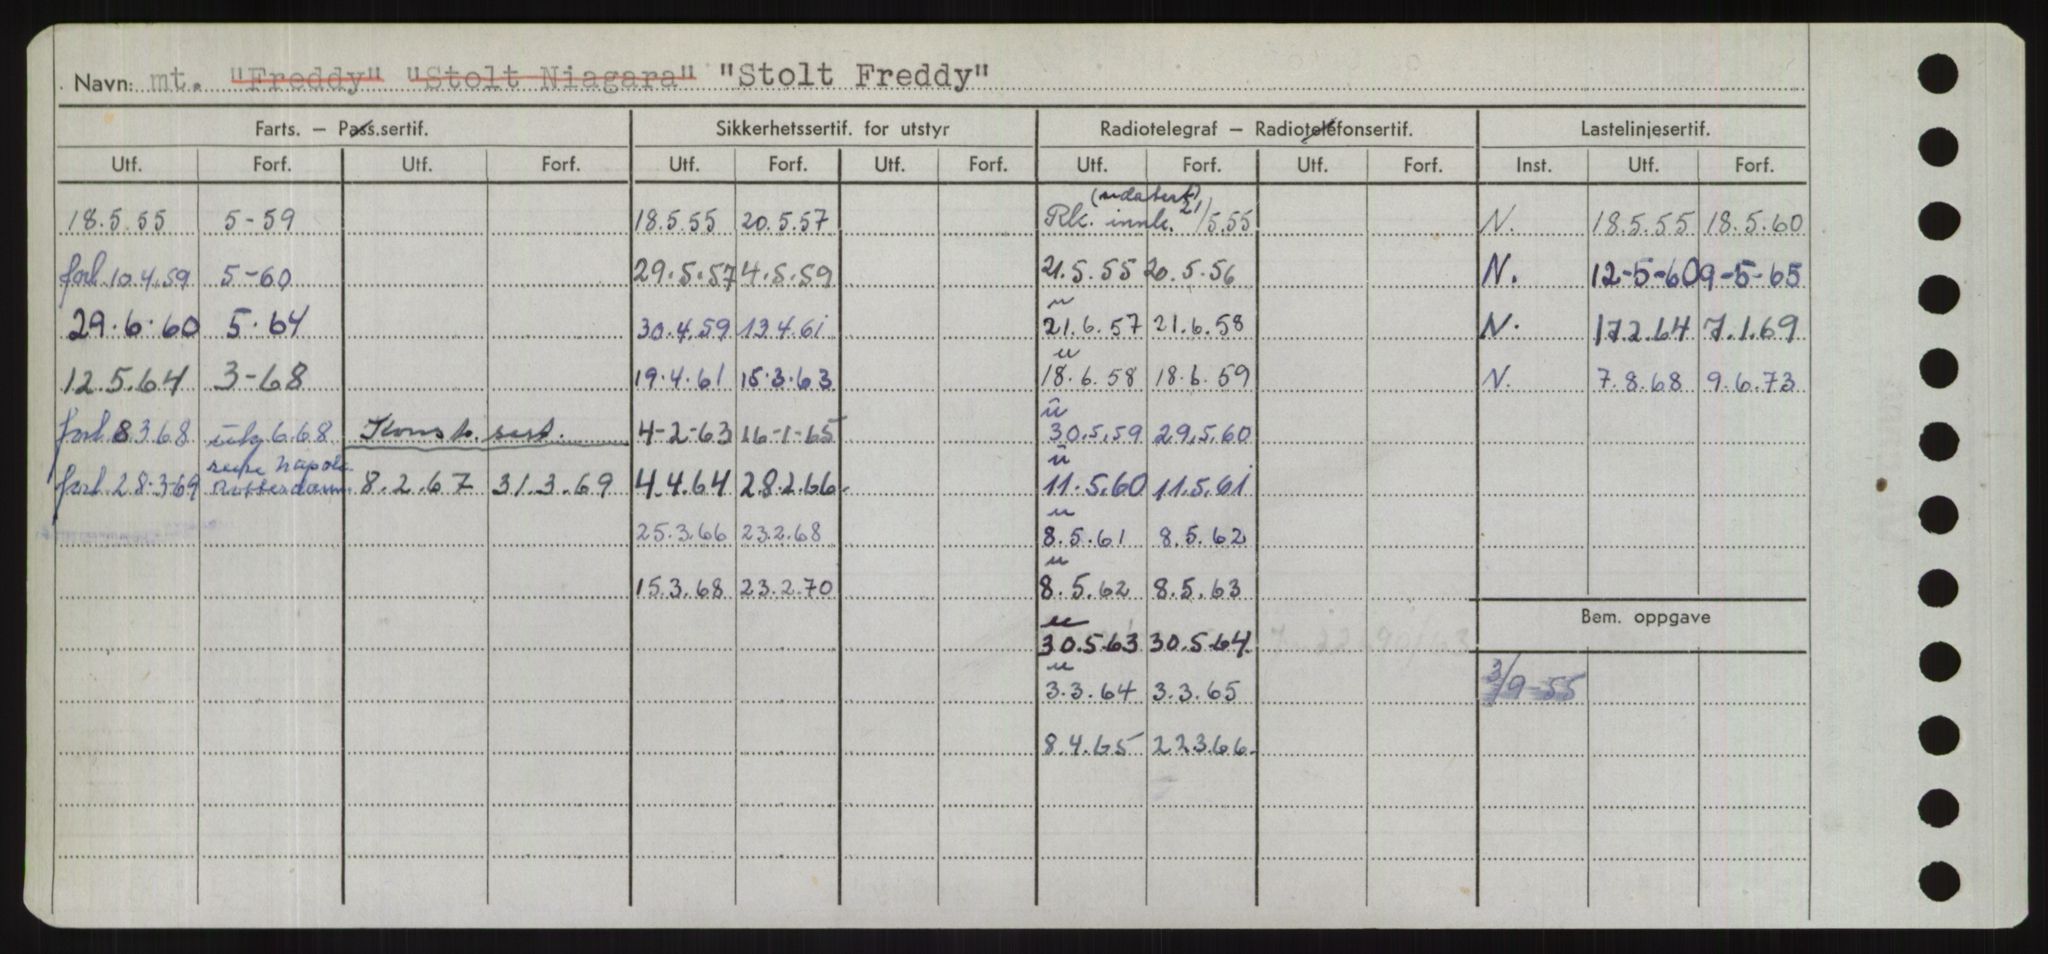 Navn: mt. "Freddy" "Stolt Niagara" "Stolt Freddy"
Farts. – Pass.sertif. Sikkerhetssertif. for utstyr Radiotelegraf – Radiotelefonsertif. Lastelinjesertif.
Utf. Forf. Utf. Forf. Utf. Forf. Utf. Forf. Utf. Forf. Utf. Forf. Inst. Utf. Forf.
18.5.55 5-59 18.5.55 20.5.57 Rk. innk. (udatert) 21/5.55 N. 18.5.55 18.5.60
forl. 10.4.59 5-60 29.5.57 4.5.59 21.5.55 20.5.56 N. 12-5-60 9-5-65
29.6.60 5.64 30.4.59 13.4.61 u 21.6.57 21.6.58 N. 17.2.64 7.1.69
12.5.64 3-68 19.4.61 15.3.63 u 18.6.58 18.6.59 N. 7.8.68 9.6.73
forl. 8.3.68 utg 6.68 Konstr. sert. 4-2-63 16-1-65 u 30.5.59 29.5.60
forl. 28.3.69 reise Napoli Rotterdam 8.2.67 31.3.69 4.4.64 28.2.66. u 11.5.60 11.5.61
25.3.66 23.2.68 u 8.5.61 8.5.62
15.3.68 23.2.70 u 8.5.62 8.5.63
Bem. oppgave
u 30.5.63 30.5.64
u 3.3.64 3.3.65 3/9-55
8.4.65 22.3.66.